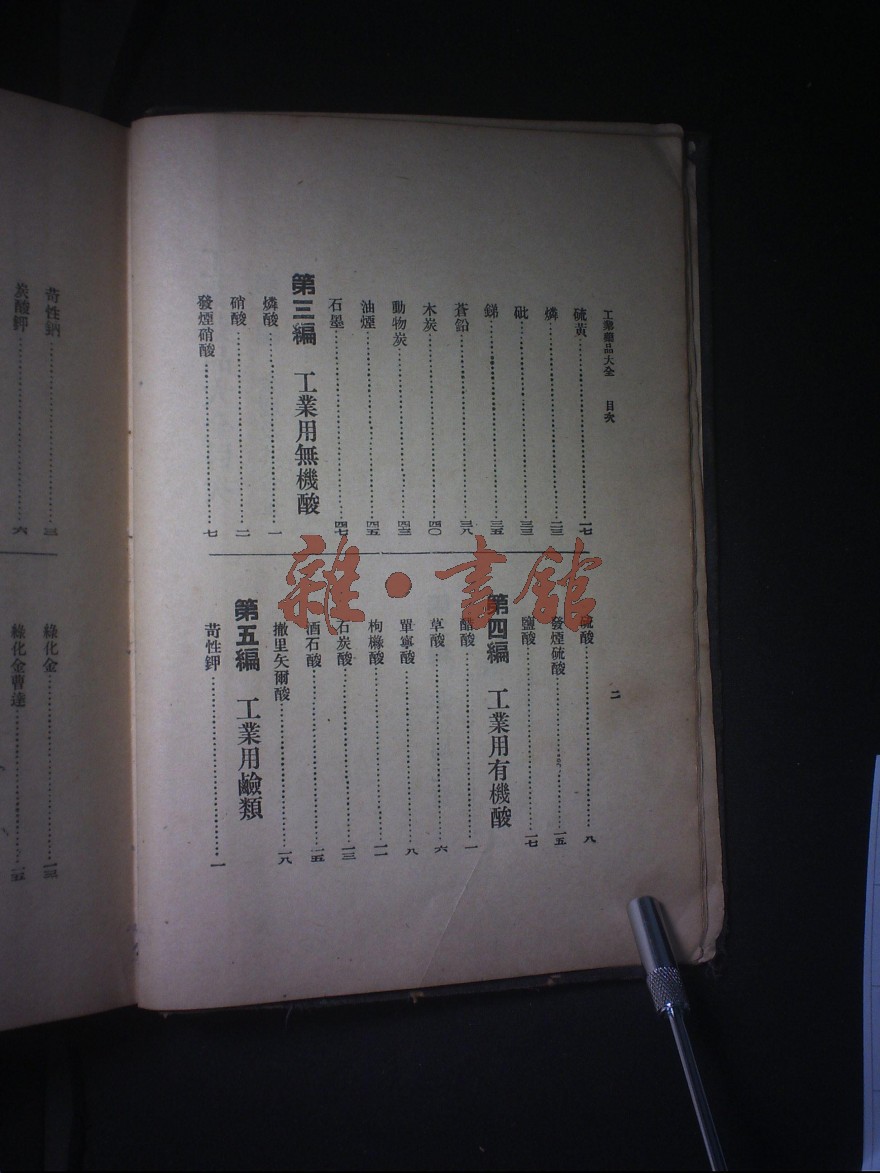 工業藥品大全　目次
二
硫黃………一七
燐………二三
砒………三三
銻………三五
蒼鉛………三八
木炭………四〇
動物炭………四三
油煙………四五
石墨………四七
第三編　工業用無機酸
燐酸………一
硝酸………二
發煙硝酸………七
硫酸………九
發煙硫酸………一五
鹽酸………一七
第四編　工業用有機酸
醋酸………一
草酸………六
單寧酸………八
枸櫞酸………一一
石炭酸………一三
酒石酸………一五
撤里矢爾酸………一八
第五編　工業用鹼類
苛性鉀………一
苛性鈉………三
炭酸鉀………六
綠化金………一三
綠化金曹達………一五
雜·書館